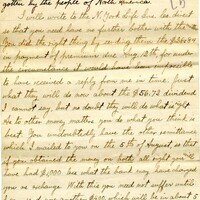 gotten by the people of North America.
I will write to the N. York Life Ins. Co. direct
so that you need have no further bother with the
You did the right thing by sending them the
in payment of premiums due Aug. 13th for under
the circumstances it would have been impossible
to have received a reply from me in time. Just
what they will do now about the $56.72 dividend
I cannot say, but no doubt they will do what is right.
As to other money matters you do what you think is
best. You undoubtedly have the other remittance
which I mailed to you on the 5th of August is that
if you obtained the money on both all right you
have had $1,000 less what the bank may have charged
you as exchange. With this you need not suffer until
another $500 which will be in about 5